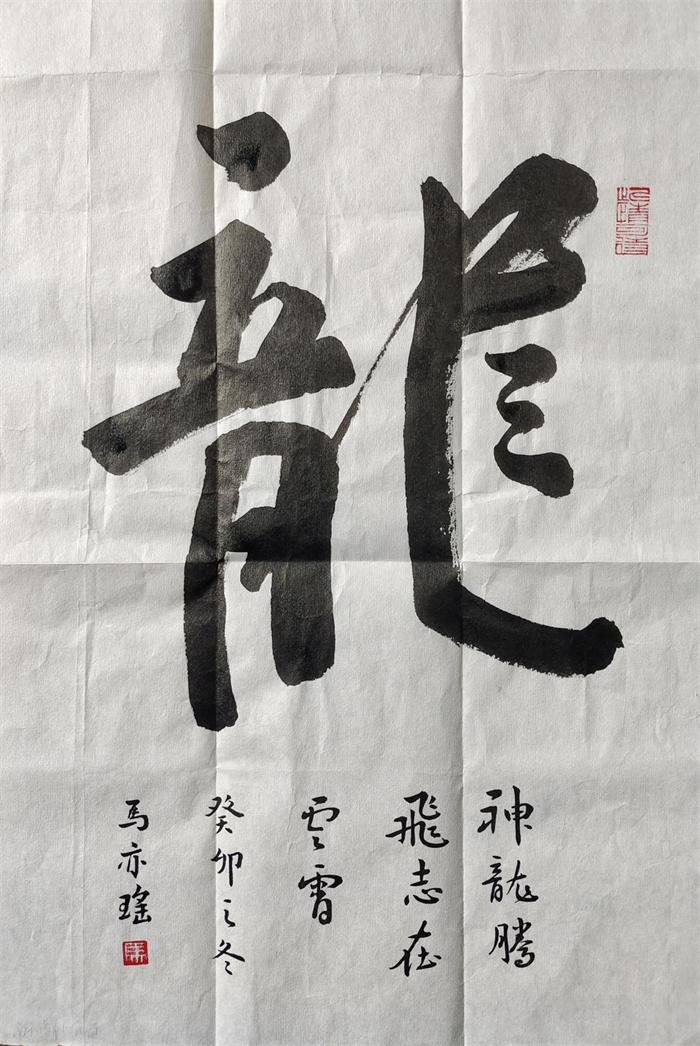 龍
神龍騰
飛志在
雲霄
癸卯之冬
馬亦瑤